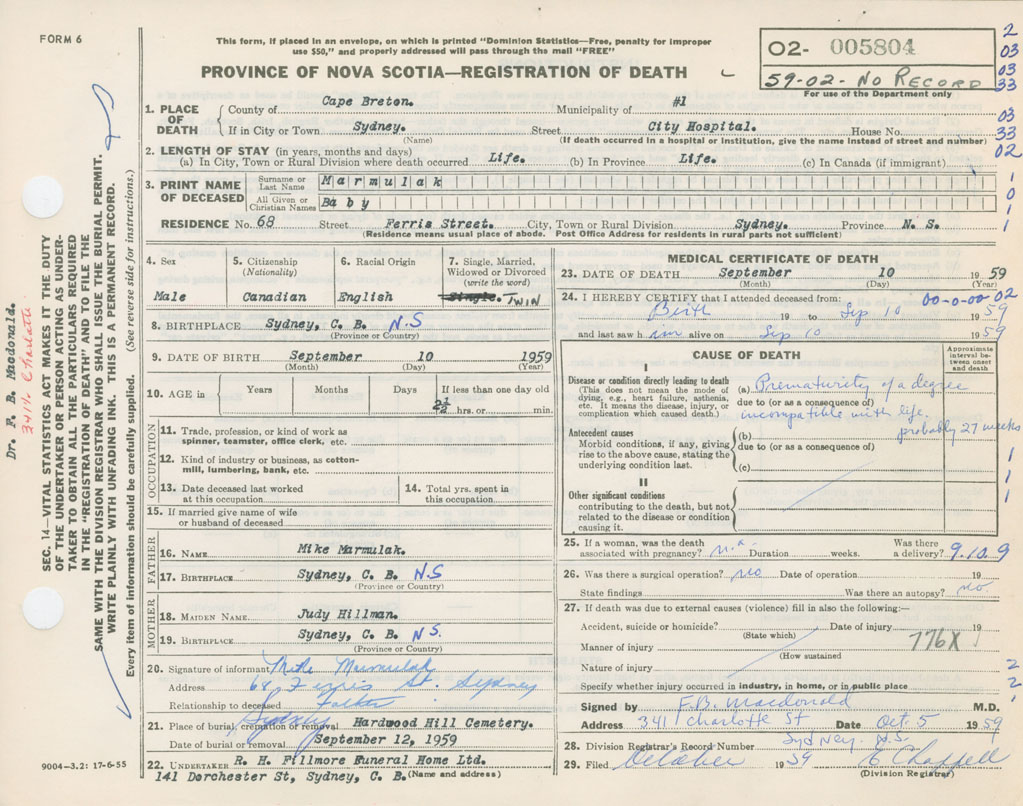 FORM 6
This form, if placed in an envelope, on which is printed "Dominion Statistics—Free, penalty for improper
use $50," and properly addressed will pass through the mail "FREE"
PROVINCE OF NOVA SCOTIA—REGISTRATION OF DEATH
02- 005804
59-02- NO RECORD
For use of the Department only
2
03
03
33
03
33
02
1
0
1
1
1. PLACE OF DEATH
County of Cape Breton. Municipality of #1
If in City or Town Sydney. Street City Hospital. House No.
(Name) (If death occurred in a hospital or institution, give the name instead of street and number)
2. LENGTH OF STAY (in years, months and days)
(a) In City, Town or Rural Division where death occurred Life. (b) In Province Life. (c) In Canada (if immigrant)
3. PRINT NAME OF DECEASED
Surname or Last Name Marmulak
All Given or Christian Names Baby
RESIDENCE No. 68 Street Ferris Street. City, Town or Rural Division Sydney. Province N. S.
(Residence means usual place of abode. Post Office Address for residents in rural parts not sufficient)
4. Sex
Male
5. Citizenship
(Nationality)
Canadian
6. Racial Origin
English
7. Single, Married,
Widowed or Divorced
(write the word)
Single. TWIN
8. BIRTHPLACE Sydney, C. B. N.S
(Province or Country)
9. DATE OF BIRTH September 10 1959
(Month) (Day) (Year)
10. AGE in Years Months Days If less than one day old
2½ hrs. or min.
OCCUPATION
11. Trade, profession, or kind of work as
spinner, teamster, office clerk, etc.
12. Kind of industry or business, as cotton-
mill, lumbering, bank, etc.
13. Date deceased last worked
at this occupation
14. Total yrs. spent in
this occupation
15. If married give name of wife
or husband of deceased
FATHER
16. NAME Mike Marmulak.
17. BIRTHPLACE Sydney, C. B. N.S
(Province or Country)
MOTHER
18. MAIDEN NAME Judy Hillman.
19. BIRTHPLACE Sydney, C. B. N S.
(Province or Country)
20. Signature of informant Mike Marmulak
Address 68 Ferris St. Sydney
Relationship to deceased Father
Sydney
21. Place of burial, cremation or removal Hardwood Hill Cemetery.
Date of burial or removal September 12, 1959
22. UNDERTAKER R. H. Fillmore Funeral Home Ltd.
141 Dorchester St, Sydney, C. B. (Name and address)
9004-3.2: 17-6-55
MEDICAL CERTIFICATE OF DEATH
23. DATE OF DEATH September 10 1959
(Month) (Day) (Year)
24. I HEREBY CERTIFY that I attended deceased from: 00-0-00-02
Birth 19 to Sep 10 1959
and last saw h im alive on Sep 10 1959
CAUSE OF DEATH
Approximate interval between onset and death
I
Disease or condition directly leading to death
(This does not mean the mode of
dying, e.g., heart failure, asthenia,
etc. It means the disease, injury, or
complication which caused death.)
(a) Prematurity of a degree
due to (or as a consequence of)
incompatible with life.
probably 27 weeks
Antecedent causes
Morbid conditions, if any, giving
rise to the above cause, stating the
underlying condition last.
(b)
due to (or as a consequence of)
(c)
II
Other significant conditions
contributing to the death, but not
related to the disease or condition
causing it.
1
1
1
25. If a woman, was the death
associated with pregnancy? n.a. Duration weeks.
Was there
a delivery? 9.10.9
26. Was there a surgical operation? no Date of operation 19
State findings Was there an autopsy? no.
27. If death was due to external causes (violence) fill in also the following:—
Accident, suicide or homicide? Date of injury 19
(State which)
Manner of injury 776X
(How sustained
Nature of injury
Specify whether injury occurred in industry, in home, or in public place
2
2
Signed by F.B. Macdonald M.D.
Address 341 Charlotte St Date Oct. 5 1959
Sydney. N.S.
28. Division Registrar's Record Number
29. Filed October 1959 E Chappell
(Division Registrar)
SEC. 14—VITAL STATISTICS ACT MAKES IT THE DUTY
OF THE UNDERTAKER OR PERSON ACTING AS UNDER-
TAKER TO OBTAIN ALL THE PARTICULARS REQUIRED
IN THE "REGISTRATION OF DEATH" AND TO FILE THE
SAME WITH THE DIVISION REGISTRAR WHO SHALL ISSUE THE BURIAL PERMIT.
WRITE PLAINLY WITH UNFADING INK. THIS IS A PERMANENT RECORD.
Every item of information should be carefully supplied. (See reverse side for instructions.)
Dr. F. B. Macdonald.
341 Charlotte